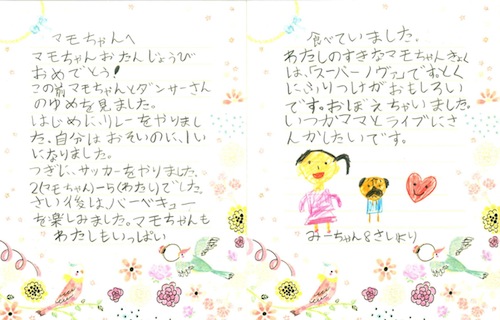 マモちゃんへ
マモちゃんおたんじょうび
おめでとう!
この前マモちゃんとダンサーさん
のゆめを見ました。
はじめに、リレーをやりまし
た。自分はおそいのに、1い
になりました。
つぎに、サッカーをやりました。
2(マモちゃん)ー5(わたし)でした。
さい後は、バーベキュー
を楽しみました。マモちゃんも
わたしもいっぱい
食べていました。
わたしのすきなマモちゃんきょく
は、「スーパーノヴァ」です。とく
に、ふりつけがおもしろい
です。おぼえちゃいました。
いつかママとライブにさ
んかしたいです。
みーちゃん&さしより